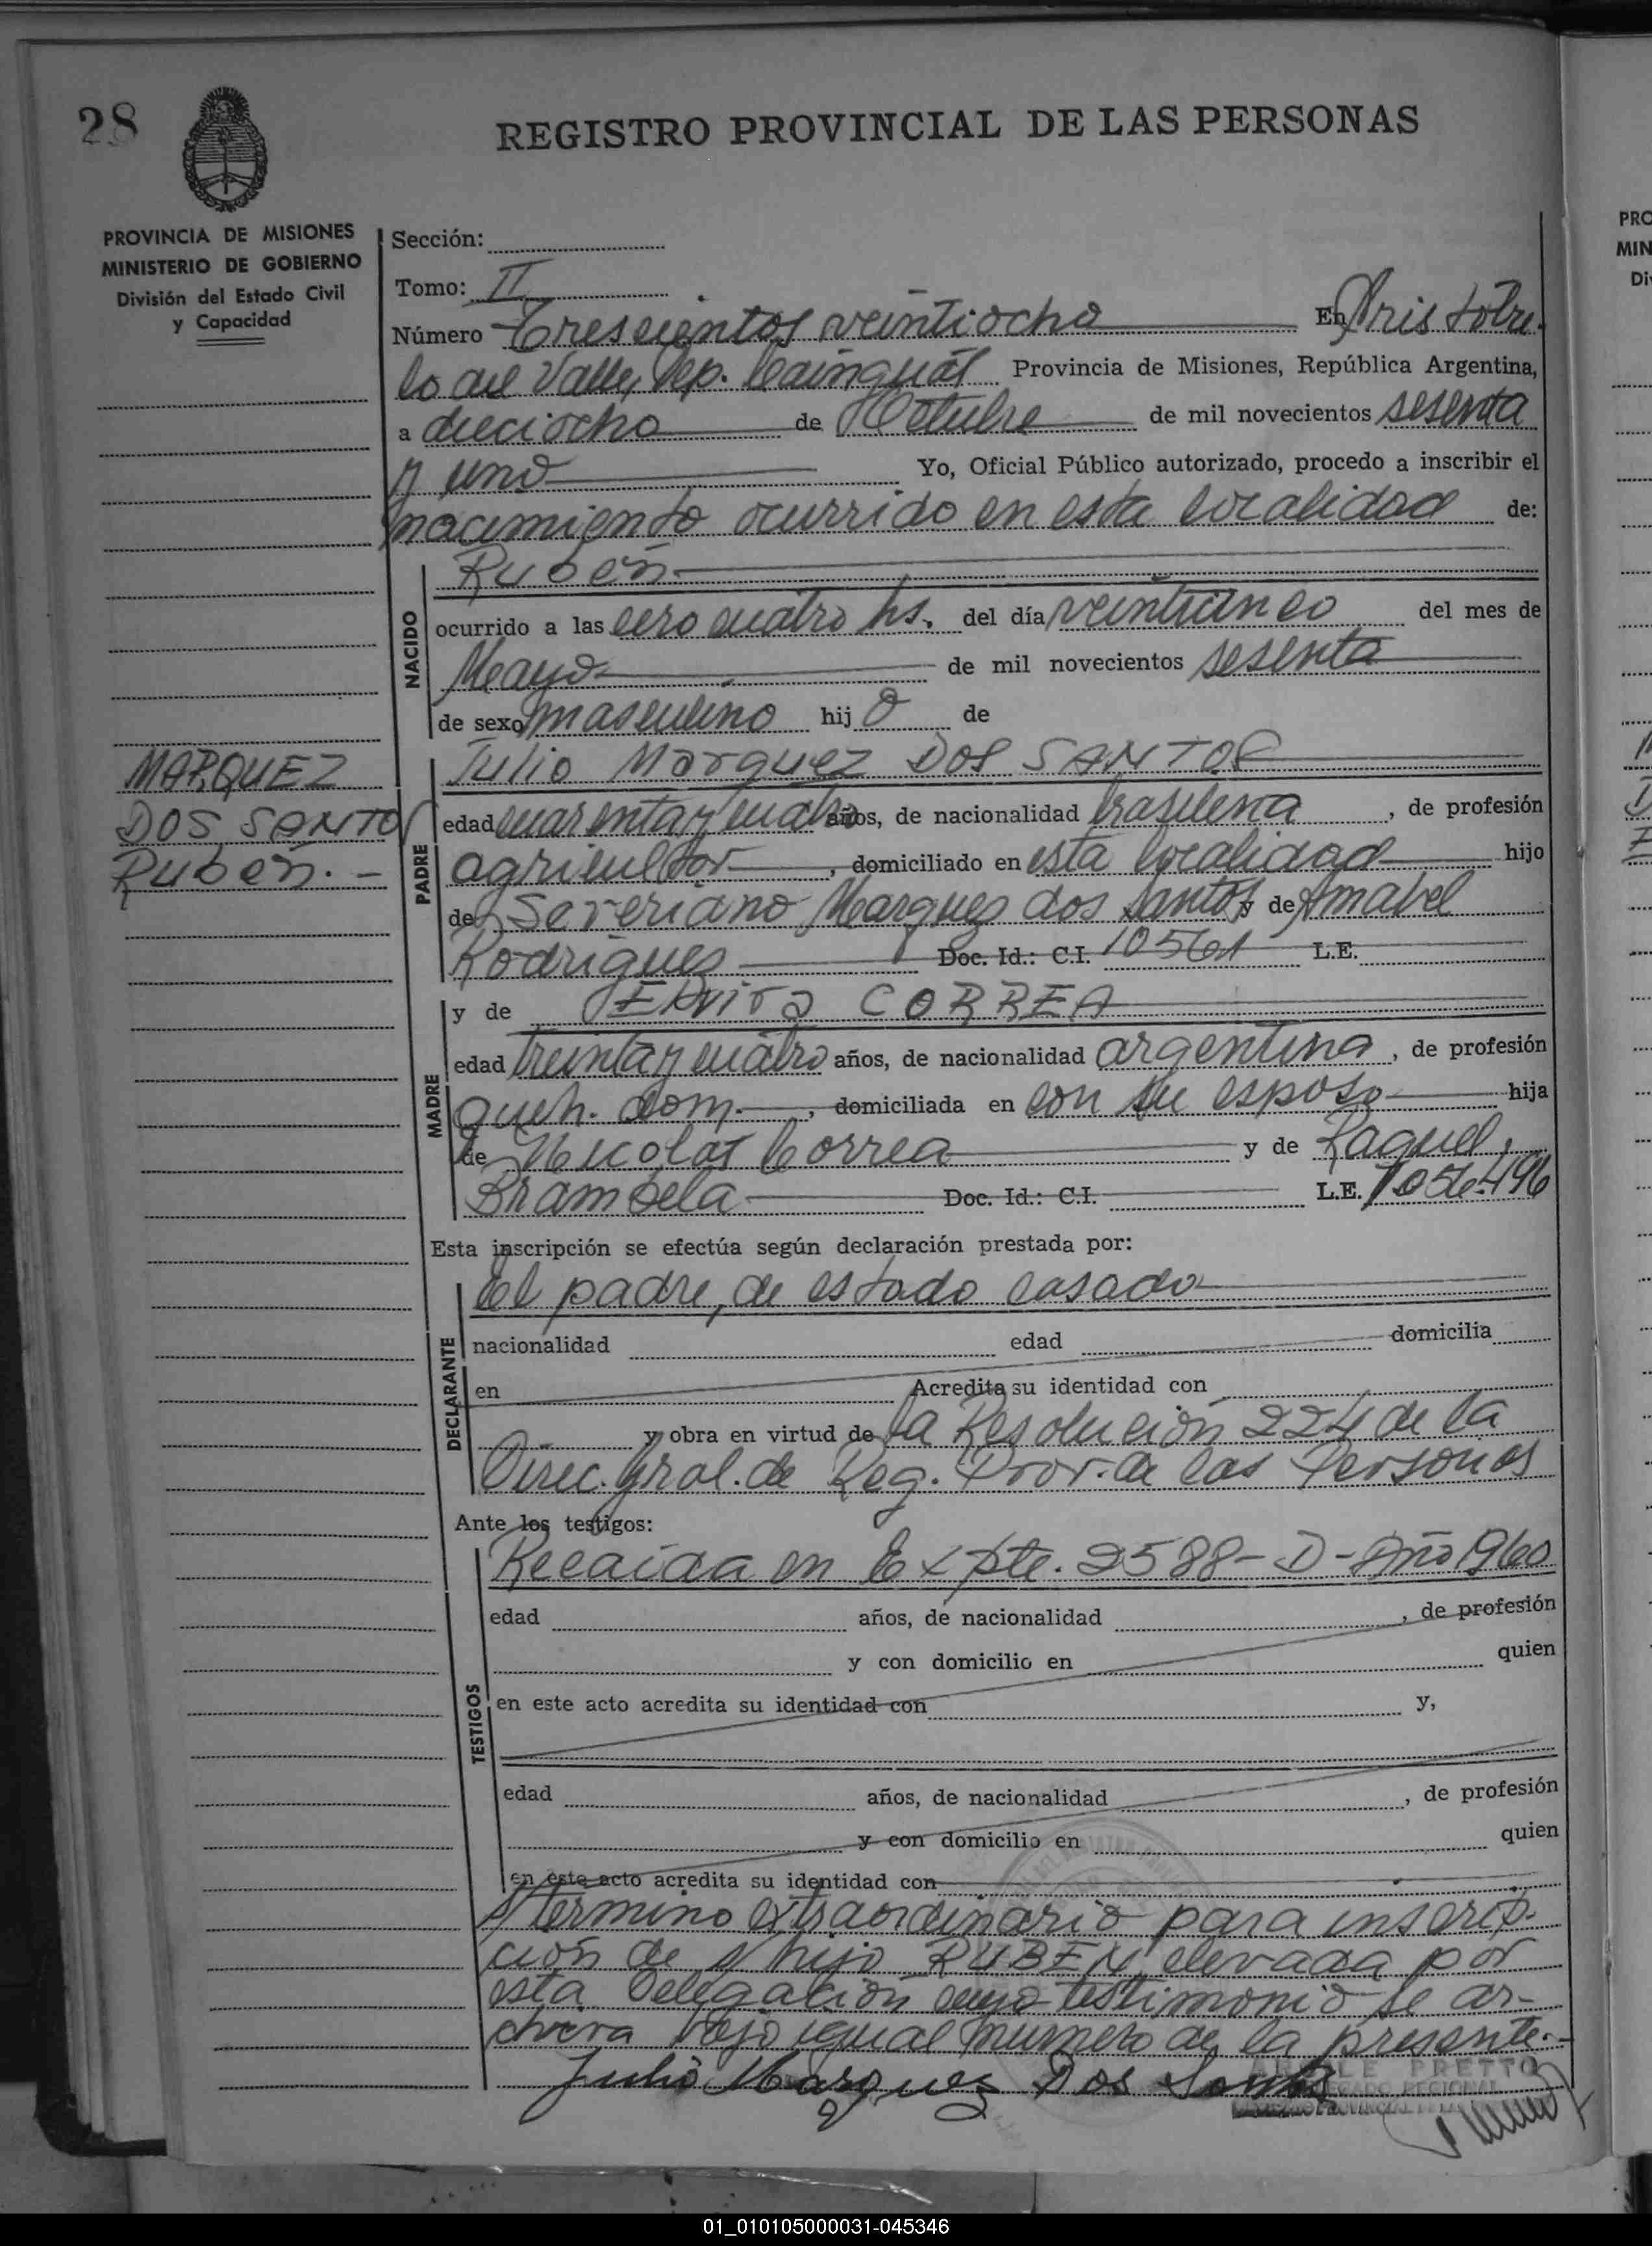 28
REGISTRO PROVINCIAL DE LAS PERSONAS
PROVINCIA DE MISIONES
MINISTERIO DE GOBIERNO
División del Estado Civil
y Capacidad
Sección:
Tomo: II
Número Trescientos veintiocho En Aristóbu-
lo del Valle, Dep. Cainguás Provincia de Misiones, República Argentina,
a dieciocho de Octubre de mil novecientos sesenta
y uno Yo, Oficial Público autorizado, procedo a inscribir el
nacimiento ocurrido en esta localidad de:
Rubén
NACIDO
ocurrido a las cero cuatro hs. del día del mes de
Mayo de mil novecientos sesenta
de sexo masculino hij o de
MARQUEZ
DOS SANTOS
Rubén.-
PADRE
Julio Marquez DOS SANTOS
edad cuarenta y cuatro años, de nacionalidad brasileña, de profesión
agricultor, domiciliado en esta localidad hijo
de Severiano Marquez dos Santos y de Amabel
Rodriguez Doc. Id.: C.I. 10561 L.E.
MADRE
y de CORREA
edad treinta y cuatro años, de nacionalidad argentina, de profesión
queh. dom., domiciliada en con su esposo hija
de Nicolas Correa y de Raquel
Brambela Doc. Id.: C.I. L.E. 1056496
Esta inscripción se efectúa según declaración prestada por:
DECLARANTE
el padre, de estado casado
nacionalidad edad domicilia
en Acredita su identidad con
y obra en virtud de la Resolución 224 de la
Direc. Gral. de Reg. Prov. de las Personas
Ante los testigos:
TESTIGOS
Recaída en Expte. 2588-D-Año 1960
edad años, de nacionalidad , de profesión
y con domicilio en quien
en este acto acredita su identidad con y,
edad años, de nacionalidad , de profesión
y con domicilio en quien
en este acto acredita su identidad con
s/término extraordinario para inscrip-
ción de s/hijo RUBEN, elevada por
esta Delegación cuyo testimonio se ar-
chiva bajo igual número de la presente.-
Julio Marquez Dos Santos
PRETTO
01_010105000031-045346